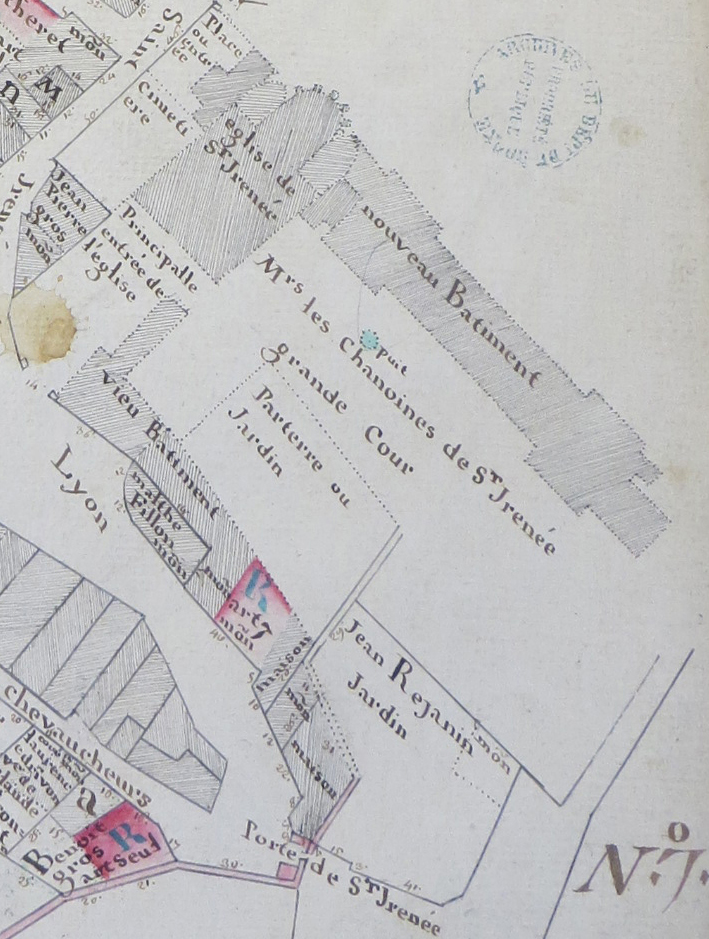 cheret
mön
art
n
M
Saint
Place
ou
cimeti
ere
eglise de
St Jrenée
Jrené
Jean
Pierre
gros
mön
Principalle
entrée de
l'église
nouveau Batiment
Mrs les Chanoines de St Jrenée
Puit
grande Cour
Parterre ou
Jardin
vieu Batiment
Lyon
Fillon
mön
R
art 7
mön
maison
mön
maison
Jean Rejanin
Jardin
mön
chevaucheurs
a
Benoit
gros
R
art seul
Porte de St Jrenée
N.º 7.
ARCHIVES DU DÉPt DU RHÔNE